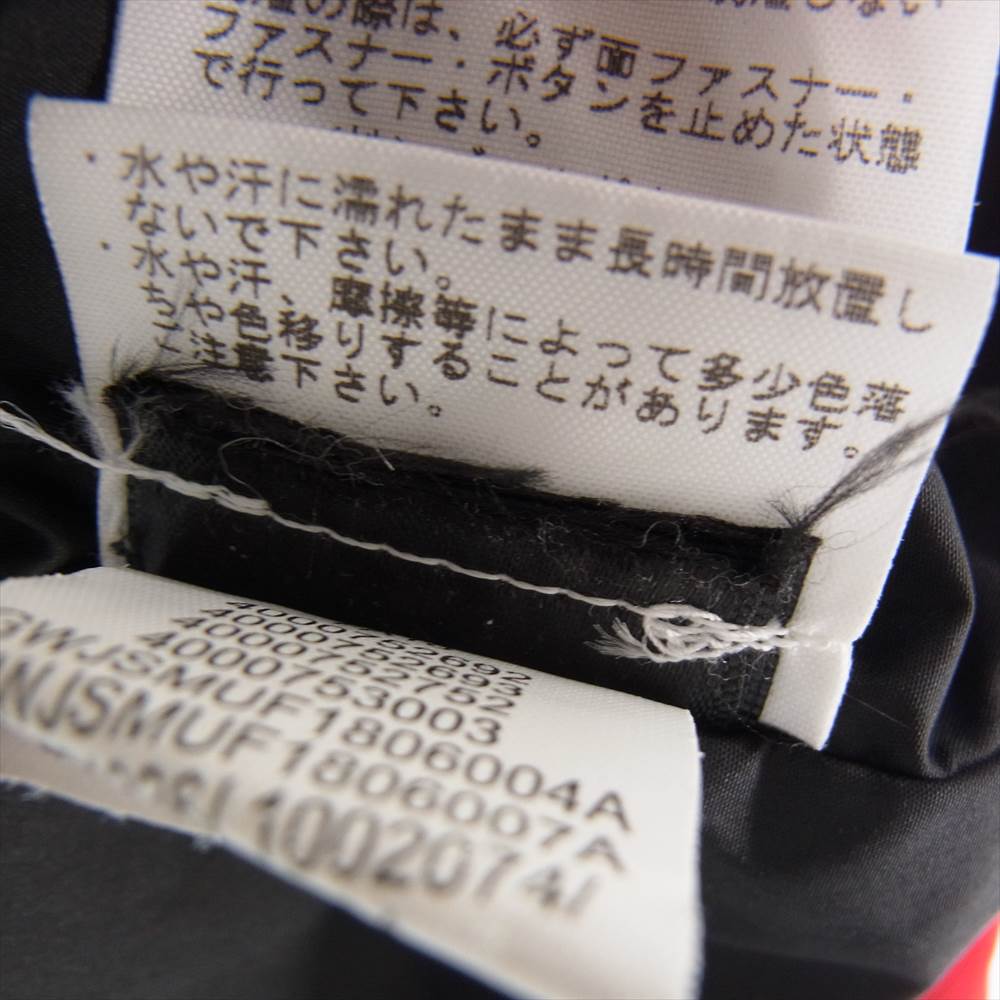 の際は、必ず面ファスナー・
ファスナー・ボタンを止めた状態
で行って下さい。
・水や汗に濡れたまま長時間放置し
ないで下さい。
・水や汗、摩擦等によって多少色落
ちや色移りすることがあります。
ご注意下さい。
400752692
4000752693
4000752752
400753003
GWJSMUF1806004A
NJSMUF1806007A
1002074